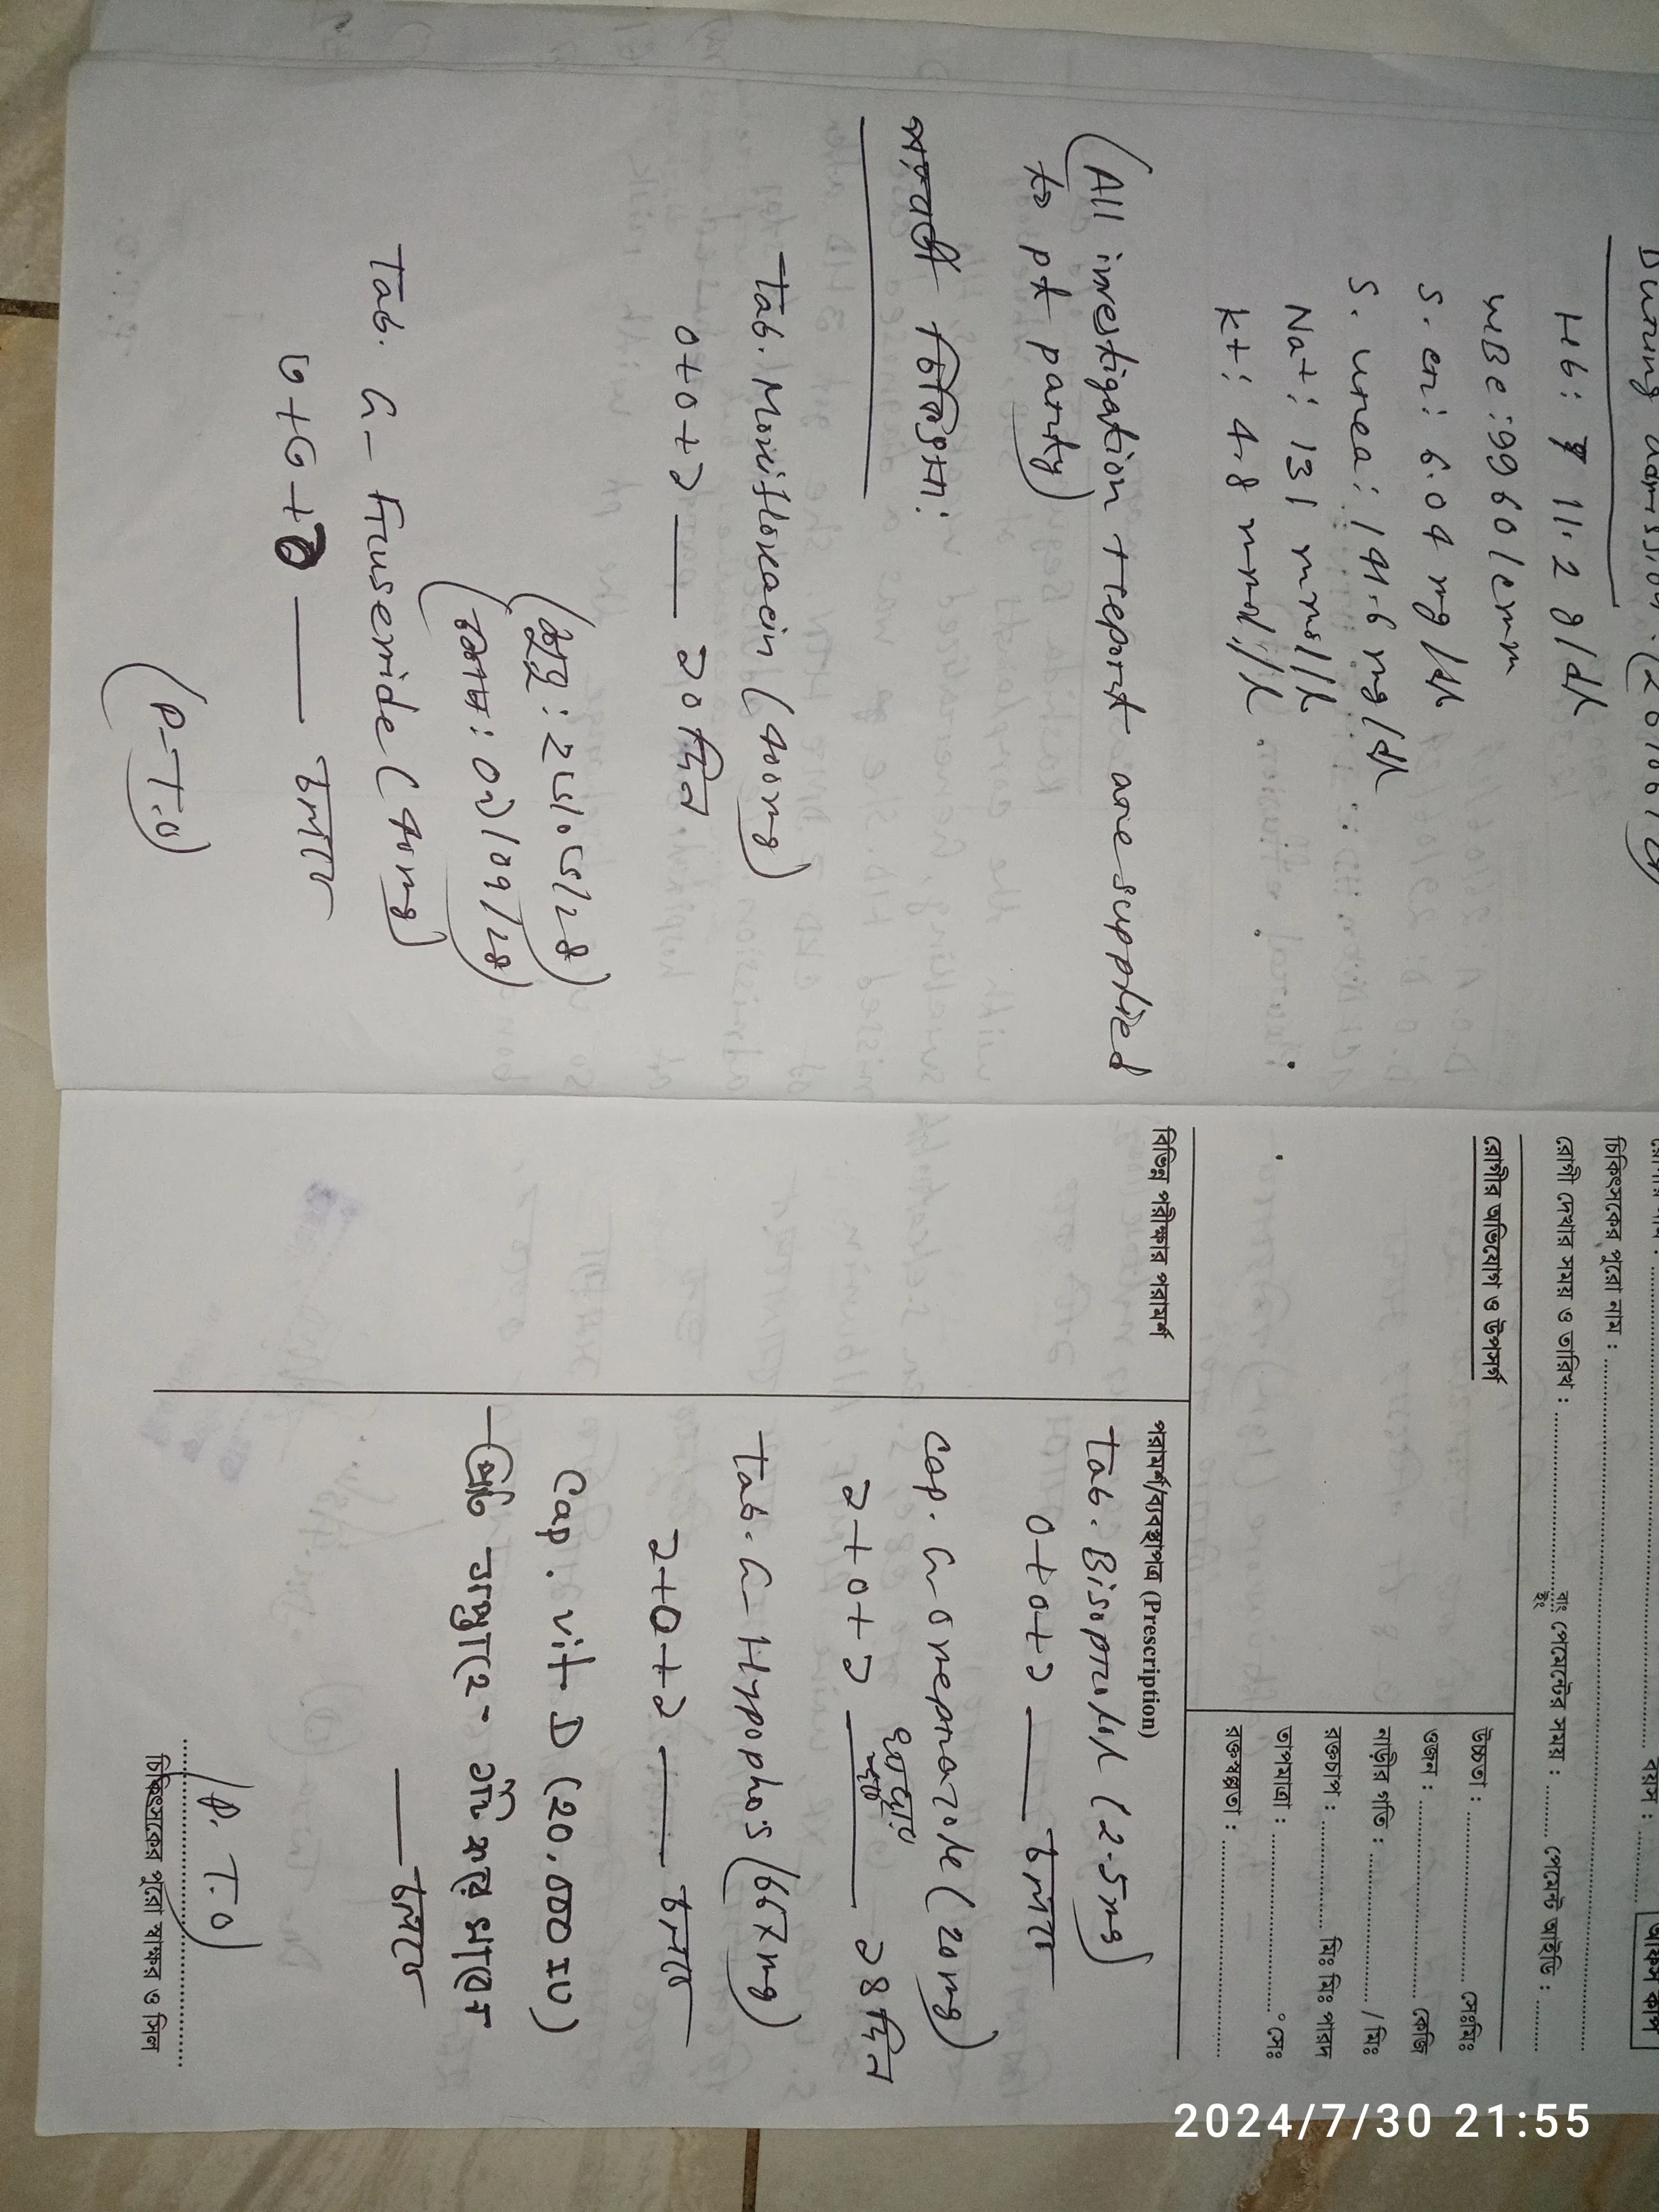 During admission: (26/06/
Hb: 11.2 g/dL
WBC: 9960/cmm
S. cr: 6.04 mg/dL
S. urea: 141.6 mg/dL
Na+: 131 mmol/L
K+: 4.8 mmol/L
(All investigation report are supplied
to pt party)
পরবর্তী চিকিৎসা:
Tab. Moxifloxacin (400mg)
0+0+১ — ১০ দিন
(শুরু: 2
(শেষ: 0
Tab. G-Frusemide (40mg)
— চলবে
(P.T.O)
চিকিৎসকের পুরো নাম :
রোগী দেখার সময় ও তারিখ : বাঃ ইং পেমেন্টের সময় : পেমেন্ট আইডি :
রোগীর অভিযোগ ও উপসর্গ
উচ্চতা : সেঃমিঃ
ওজন : কেজি
নাড়ীর গতি : / মিঃ
রক্তচাপ : মিঃ মিঃ পারদ
তাপমাত্রা : ° সেঃ
রক্তস্বল্পতা :
বিভিন্ন পরীক্ষার পরামর্শ
পরামর্শ/ব্যবস্থাপত্র (Prescription)
Tab. Bisoprolol (2.5mg)
0+0+১ — চলবে
Cap. G-Omeprazole (20mg)
১+0+১ — ১৪ দিন
Tab. G-Hypophos (667mg)
১+0+১ — চলবে
Cap. Vit D (20,000 IU)
প্রতি সপ্তাহে ১টি করে খাবেন
— চলবে
(P.T.O)
চিকিৎসকের পুরো স্বাক্ষর ও সিল
2024/7/30 21:55